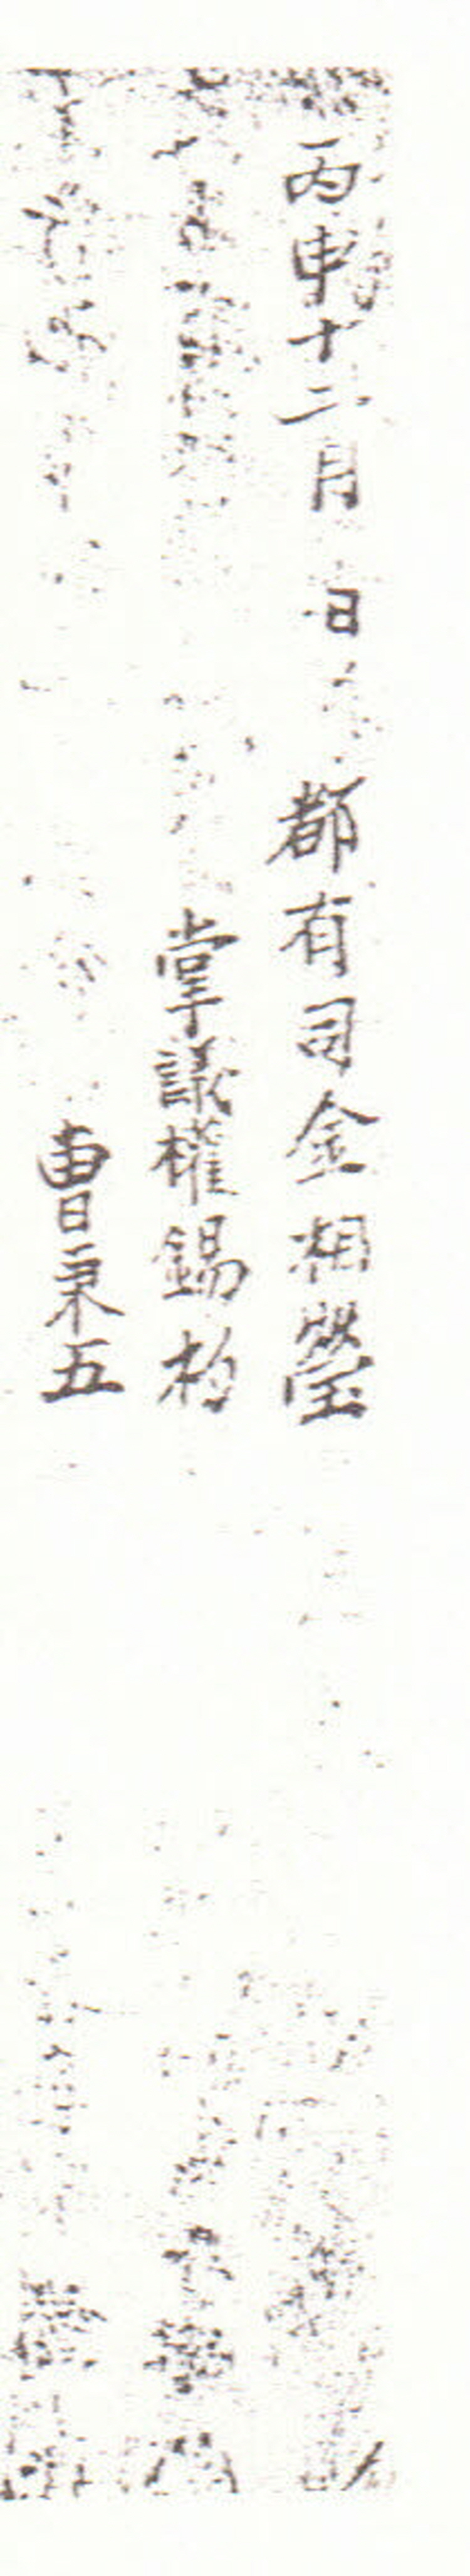 丙申十二月 日 都有司金相瑩
掌議權錫杓
曺秉五